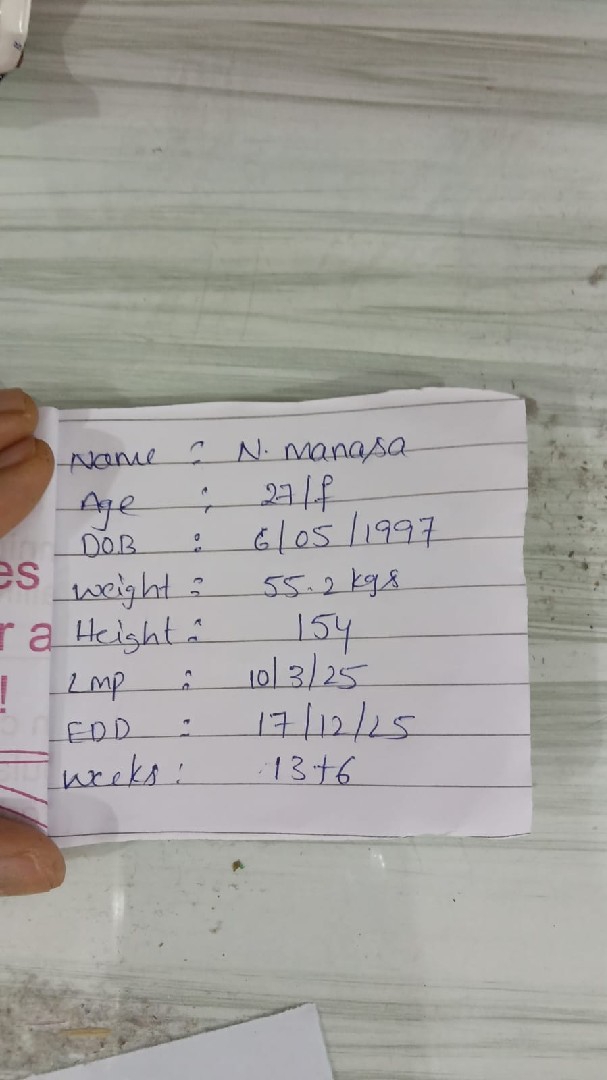 Name : N. Manasa
Age : 27/f
DOB : 6/05/1997
weight : 55.2 kgs
Height : 154
LMP : 10/3/25
EDD : 17/12/25
weeks : 13+6
es
r a
!